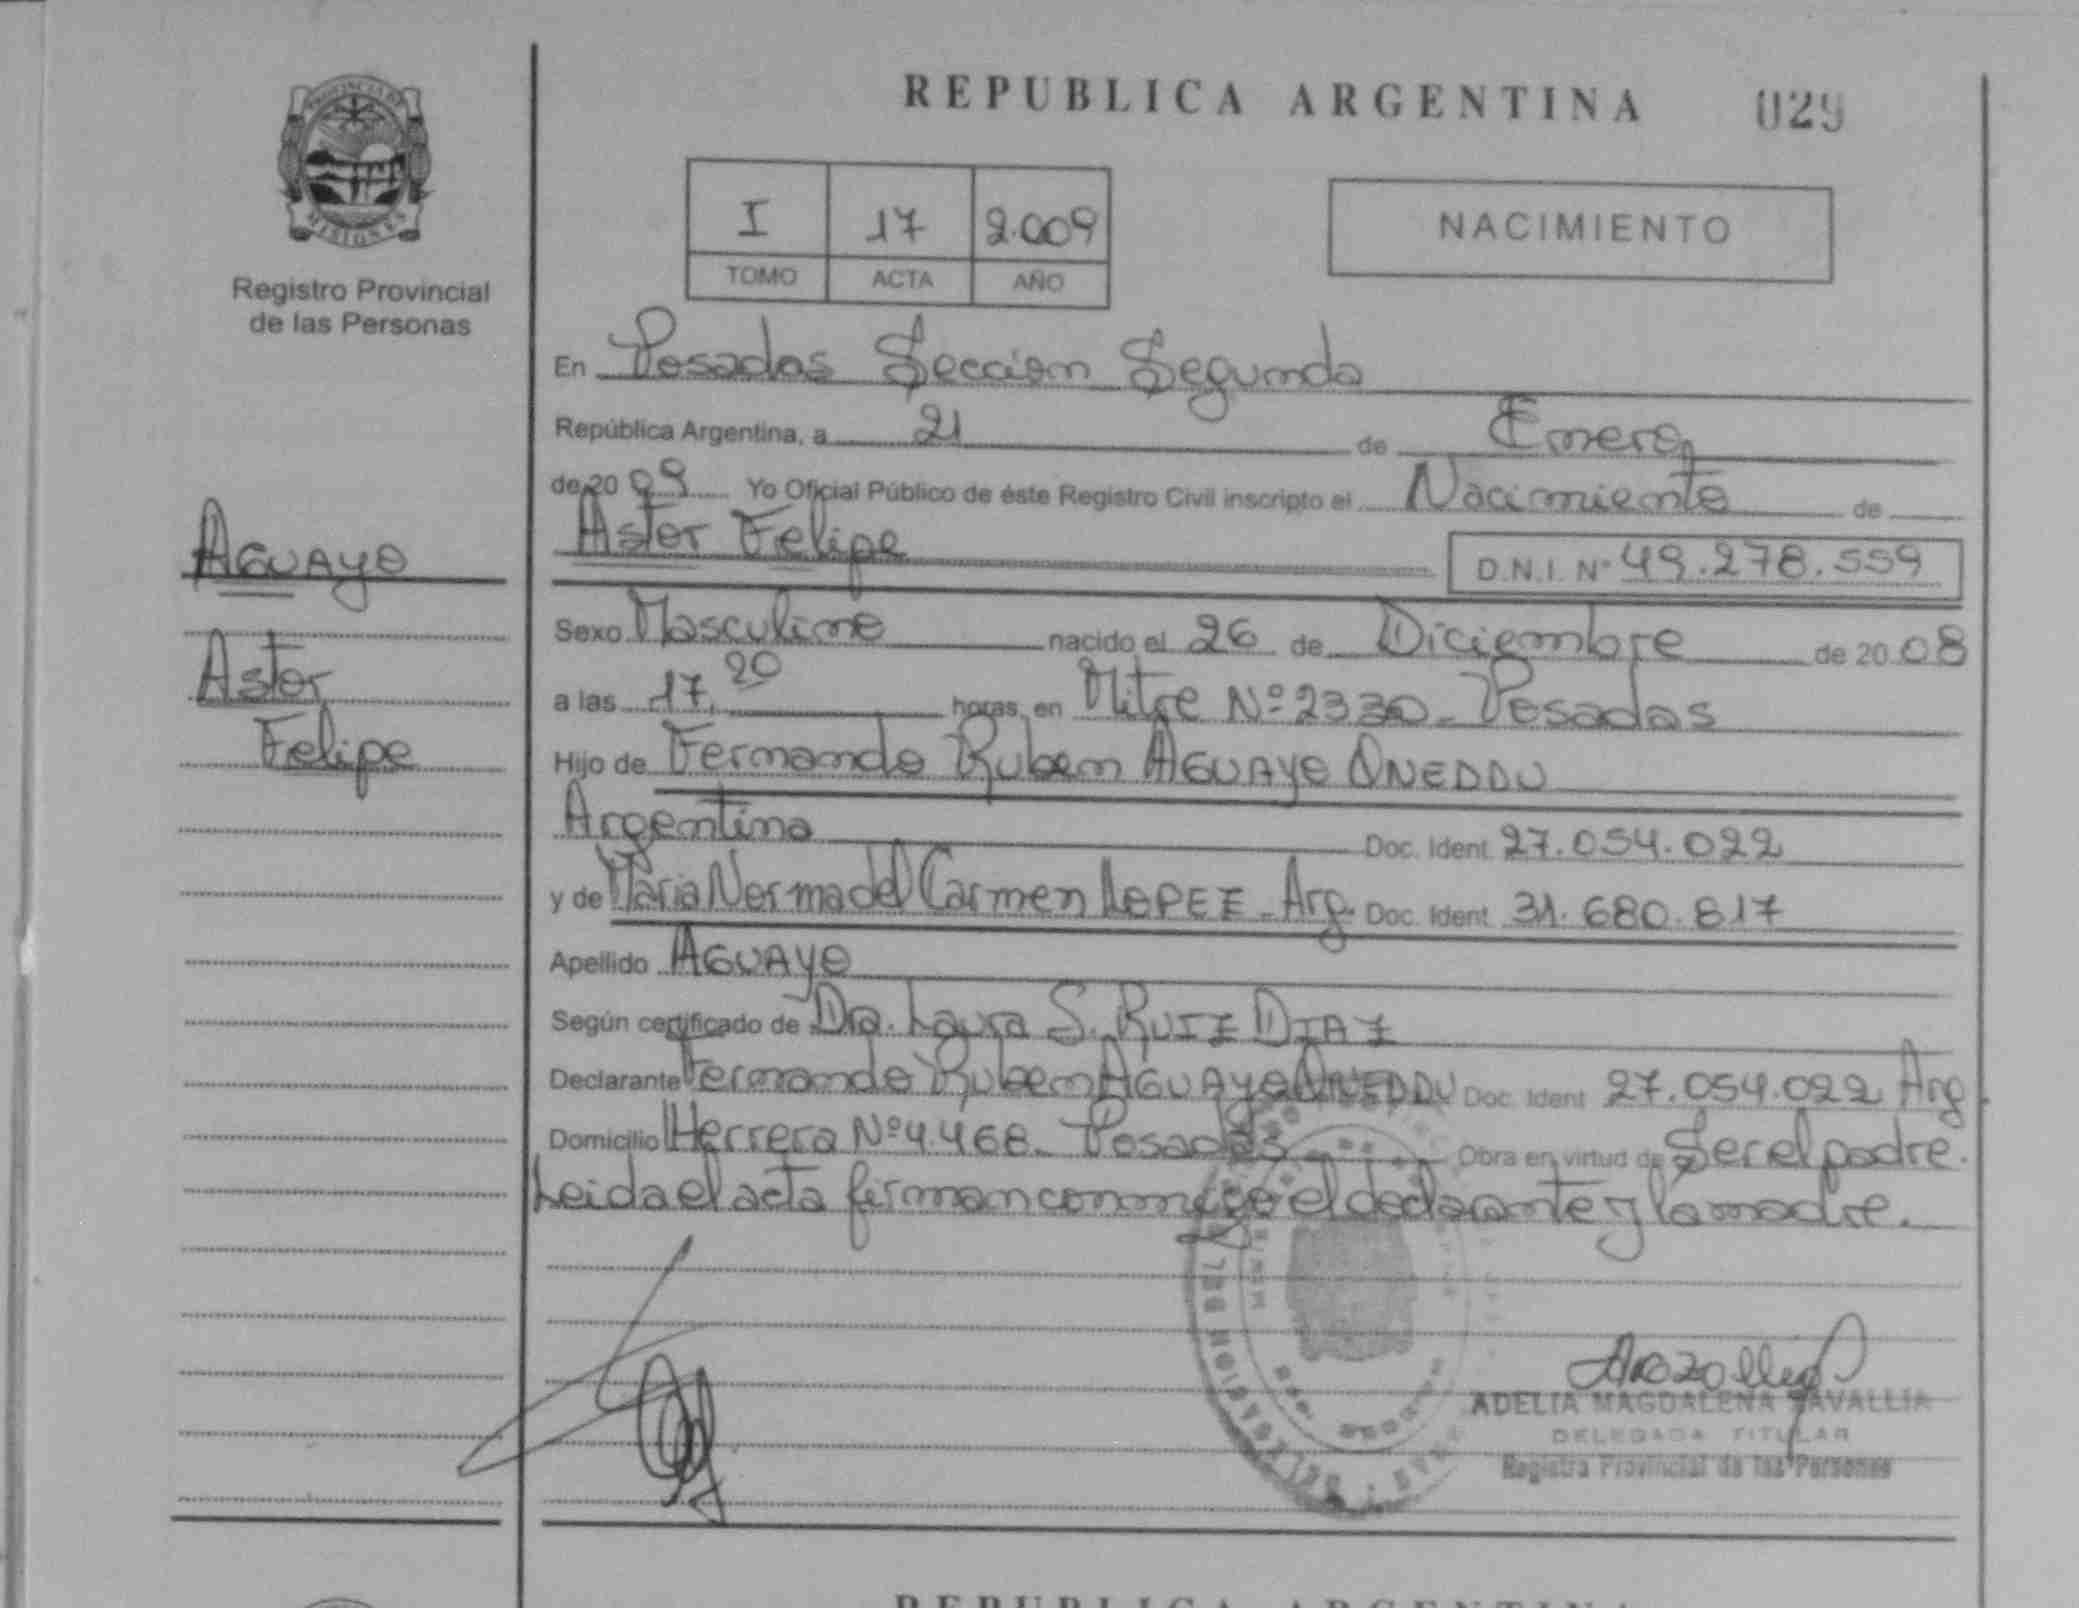 REPUBLICA ARGENTINA 029
PROVINCIA DE
MISIONES
Registro Provincial
de las Personas
I 17 2.009
TOMO ACTA AÑO
NACIMIENTO
En Posadas Sección Segunda
República Argentina, a 21 de Enero
de 20 09 Yo Oficial Público de éste Registro Civil inscripto el Nacimiento de
Astor Felipe D.N.I. Nº 49.278.559
AGUAYO
Astor
Felipe
Sexo Masculino nacido el 26 de Diciembre de 20 08
a las 17,20 horas, en Mitre Nº 2330 - Posadas
Hijo de Fernando Ruben AGUAYO ONEDDU
Argentina Doc. Ident. 27.054.022
y de Maria Norma del Carmen LOPEZ - Arg. Doc. Ident. 31.680.817
Apellido AGUAYO
Según certificado de Dra. Laura S. RUIZ DIAZ
Declarante Fernando Ruben AGUAYO ONEDDU Doc. Ident. 27.054.022 Arg.
Domicilio Herrera Nº 4.468 - Posadas Obra en virtud de Ser el padre.
Leida el acta firman conmigo el declarante y la madre.
ADELIA MAGDALENA
DELEGADA TITULAR
Registro Provincial de las Personas
REPUBLICA ARGENTINA